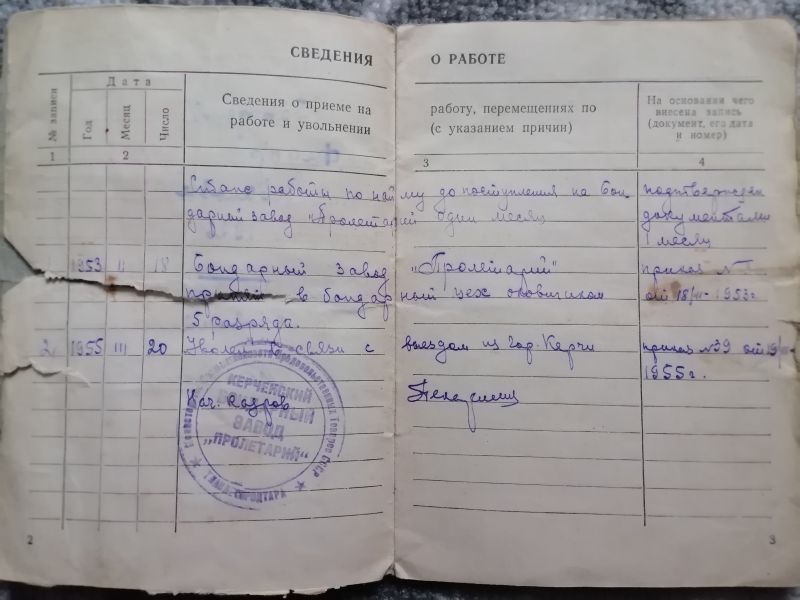 СВЕДЕНИЯ О РАБОТЕ
№ записи
Дата
Год
Месяц
Число
Сведения о приеме на работу, перемещениях по
работе и увольнении (с указанием причин)
На основании чего
внесена запись
(документ, его дата
и номер)
1 2 3 4
работы по найму до поступления на бон
дарный завод "Пролетарий" один месяц
документами
1 месяц
1953 II 18 Бондарный завод "Пролетарий" приказ №
в бондарный цех
от 18/II-1953г
5 разряда.
2 1955 III 20 Уволен в связи с выездом из гор. Керчи приказ №39 от 19/III-
1955г.
Нач. кадров
КЕРЧЕНСКИЙ
ЗАВОД
„ПРОЛЕТАРИЙ“
2
3